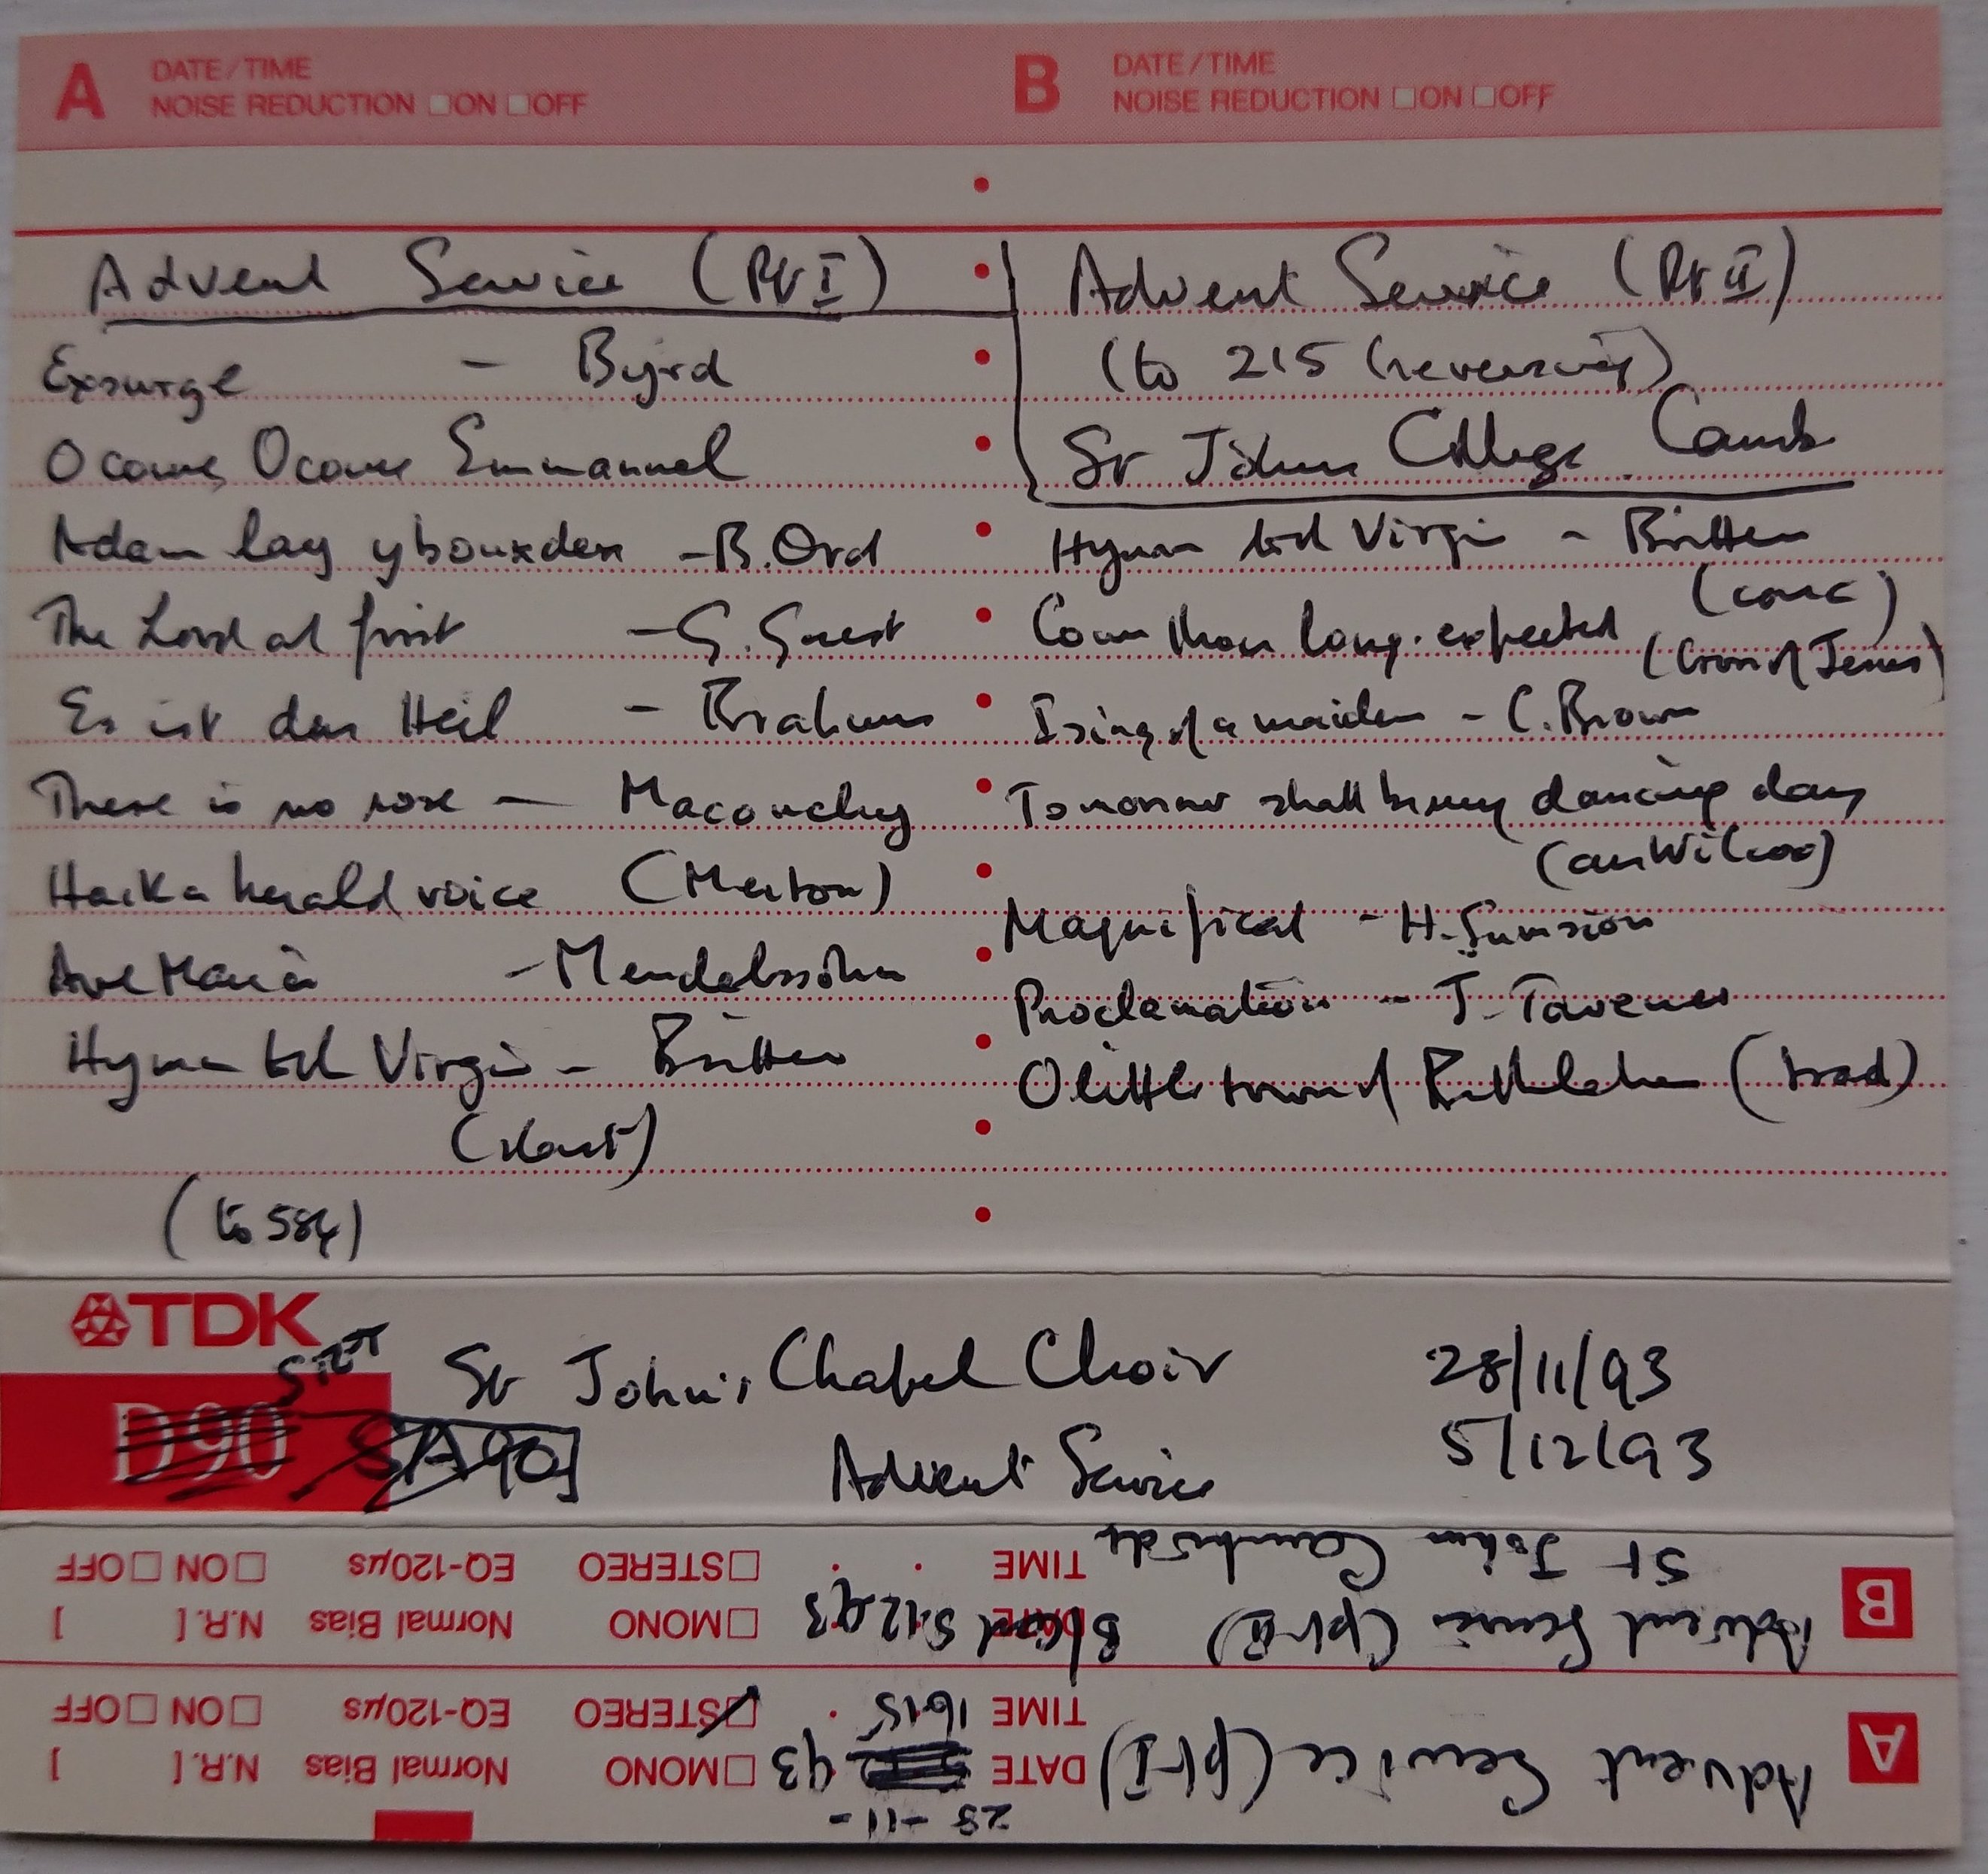 A DATE/TIME
NOISE REDUCTION ON OFF
B DATE/TIME
NOISE REDUCTION ON OFF
Advent Service (Pt I)
Exsurge - Byrd
O come, O come Emmanuel
Adam lay ybounden - B. Ord
The Lord at first - G. Guest
Es ist das Heil - Brahms
There is no rose - Maconchy
Hark a herald voice (Merton)
Ave Maria - Mendelssohn
Hymn to the Virgin - Britten
(start)
(to 584)
Advent Service (Pt II)
(to 215 (reversing)
St Johns College. Camb
Hymn to the Virgin - Britten
(conc)
Come thou long-expected
(Cross of Jesus)
I sing of a maiden - C. Brown
Tomorrow shall be my dancing day
(arr Wilcoo)
Magnificat - H. Sumsion
Proclamation - J. Tavener
O little town of Bethlehem (trad)
TDK
D90
SA90
St John's Chapel Choir 28/11/93
Advent Service 5/12/93
A Advent Service (pt I) DATE 28-11- 93 MONO Normal Bias N.R. [ ]
TIME 1615 STEREO EQ-120µs ON OFF
B Advent Service (pt II) DATE 5.12.93 MONO Normal Bias N.R. [ ]
St Johns Cambridge TIME STEREO EQ-120µs ON OFF